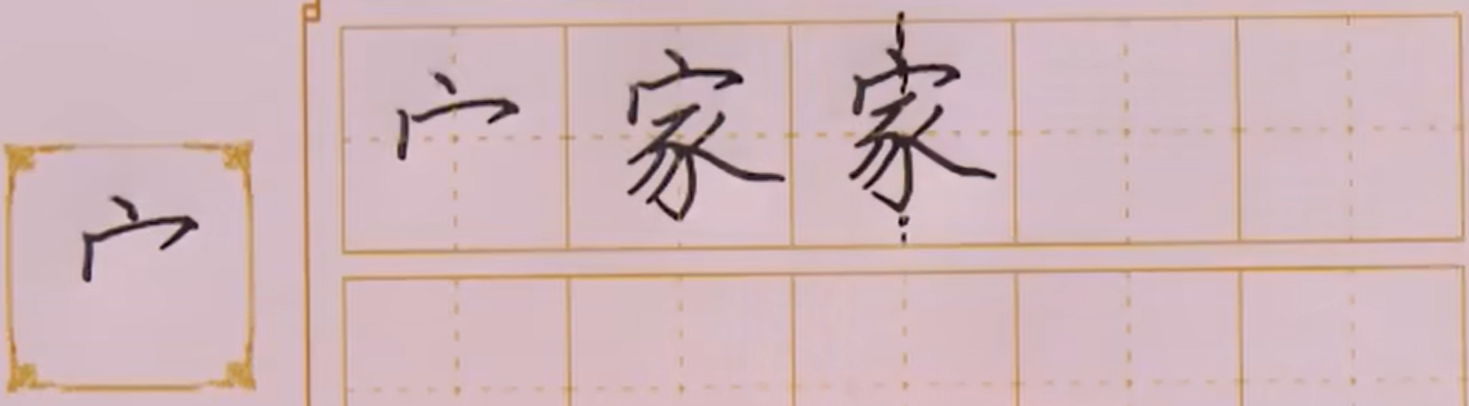 宀
宀 家 家